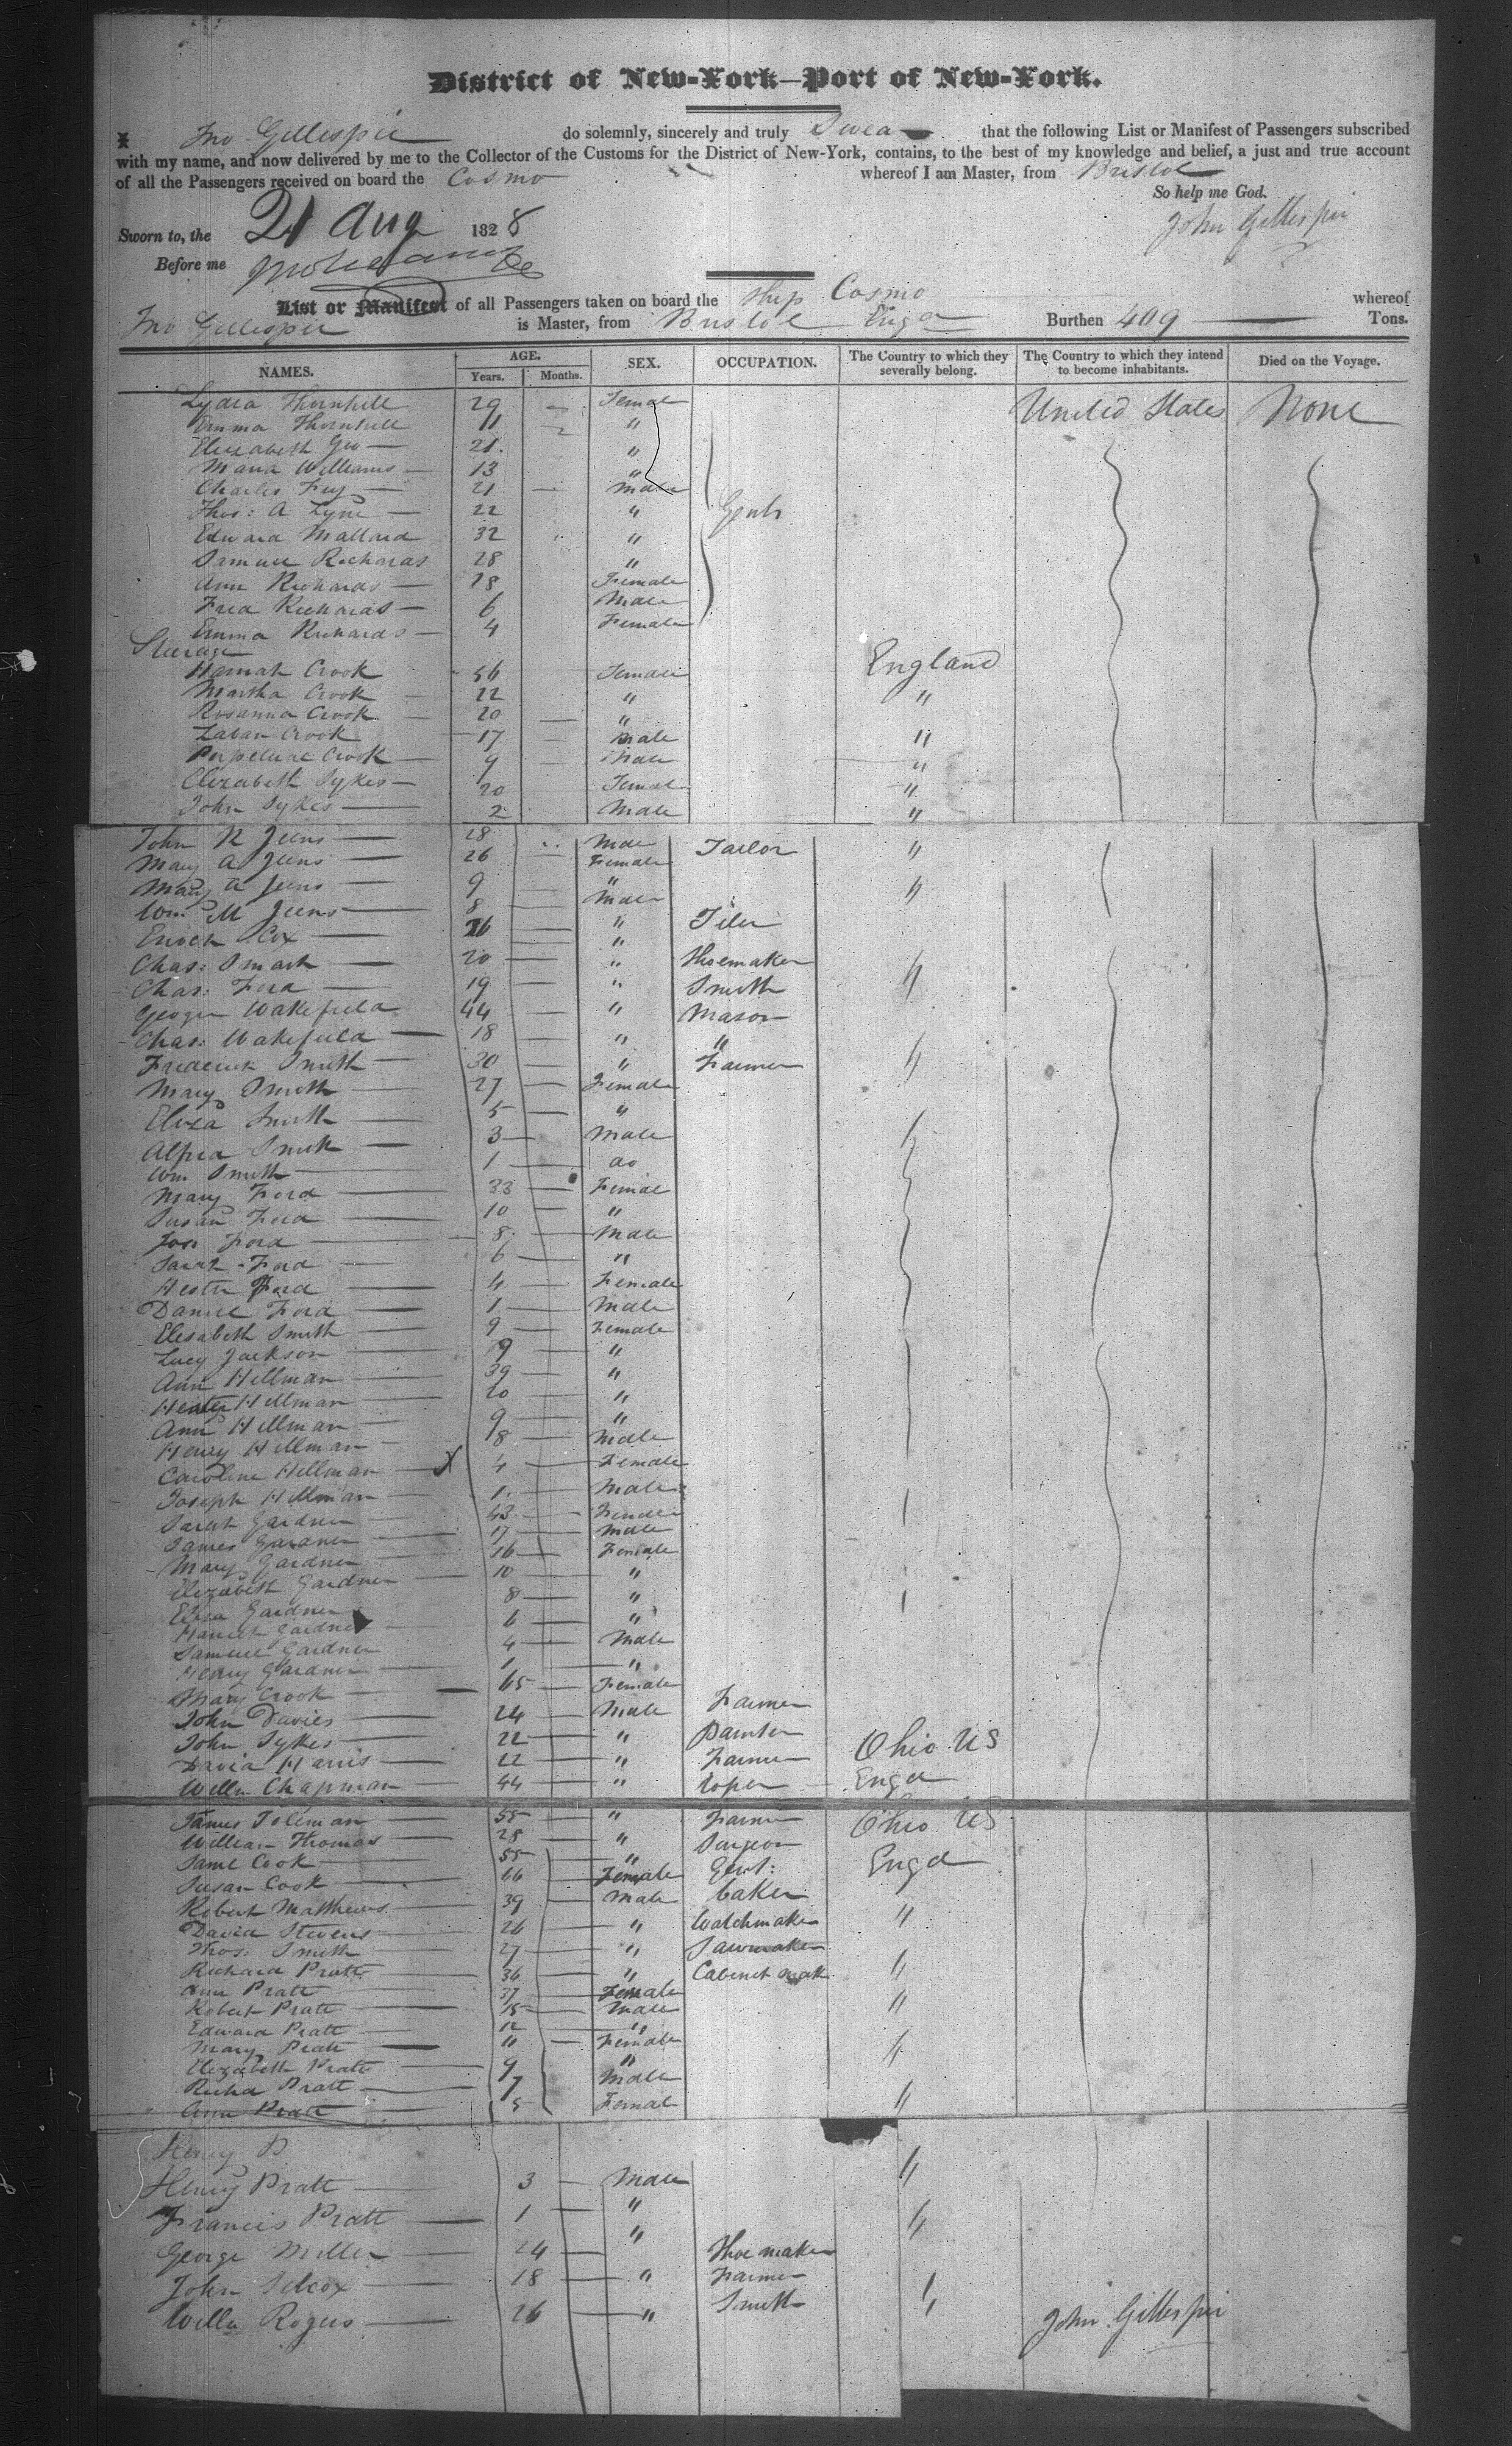 District of New-York—Port of New-York.
I Jno Gillespie do solemnly, sincerely and truly Swear that the following List or Manifest of Passengers subscribed
with my name, and now delivered by me to the Collector of the Customs for the District of New-York, contains, to the best of my knowledge and belief, a just and true account
of all the Passengers received on board the Cosmo whereof I am Master, from Bristol
So help me God.
Sworn to, the 21 Aug 1828 John Gillespie
Before me
List or Manifest of all Passengers taken on board the Ship Cosmo whereof
Jno Gillespie is Master, from Bristol Engd Burthen 409 Tons.
NAMES. AGE. Years. Months. SEX. OCCUPATION. The Country to which they severally belong. The Country to which they intend to become inhabitants. Died on the Voyage.
Lydia Thornhill 29 Female United States None
Emma Thornhill 11 "
Elizabeth 21 "
Maria Williams 13 "
Charles 21 Male
Thos: A Lyne 22 " Gents
Edward Mallard 32 "
Samuel Richards 28 "
Ann Richards 28 Female
Fred Richards 6 Male
Emma Richards 4 Female
Steerage
Hannah Crook 56 Female England
Martha Crook 22 " "
Rosanna Crook 20 "
Laban Crook 17 Male "
Perpetual Crook 9 Male "
Elizabeth Sykes 20 Female "
John Sykes 2 Male "
John R Jeens 28 Male Tailor "
Mary A Jeens 26 Female
Mary A Jeens 9 " "
Wm M Jeens 8 Male
Enoch Cox 26 " Tiler
Chas: Smart 20 " Shoemaker
Chas: Ford 19 " Smith "
George Wakefield 44 " Mason
Chas: Wakefield 18 " "
Frederick Smith 30 " Farmer "
Mary Smith 27 Female
Eliza Smith 5 "
Alfred Smith 3 Male
Wm Smith 1 do
Mary Ford 33 Female
Susan Ford 10 "
Jos Ford 8 Male
Ford 6 "
Hester Ford 4 Female
Daniel Ford 1 Male
Elesabeth Smith 9 Female
Lucy Jackson 9 "
Ann Hillman 39 "
Hester Hillman 20 "
Ann Hillman 9 "
Henry Hillman 8 Male
Caroline Hillman X 4 Female
Joseph Hillman 1 Male
Sarah Gardner 43 Female
James Gardner 17 Male
Mary Gardner 16 Female
Elizabeth Gardner 10 "
Eliza Gardner 8 "
Harriet Gardner 6 "
Samuel Gardner 4 Male
Henry Gardner 1 "
Mary Crook 65 Female
John Davies 24 Male Farmer
John Sykes 22 " Painter
David Harris 22 " Farmer Ohio US
Willm Chapman 44 " Roper Engd
James Toleman 55 " Farmer Ohio US
William Thomas 28 " Surgeon
Saml Cook 55 " Gent: Engd
Susan Cook 66 Female
Robert Matthews 39 Male baker
David Stevens 26 " Watchmaker "
Thos: Smith 27 "
Richard Pratt 36 " Cabinet mak "
Ann Pratt 37 Female
Robert Pratt 15 Male "
Edward Pratt 12 "
Mary Pratt 11 Female
Elizabeth Pratt 9 " "
Richd Pratt 7 Male
Ann Pratt 5 Female "
Henry P
Henry Pratt 3 Male "
Francis Pratt 1 " "
George Miller 24 " Shoe maker
John Silcox 18 " Farmer "
Willm Rogers 26 " Smith "
John Gillespie